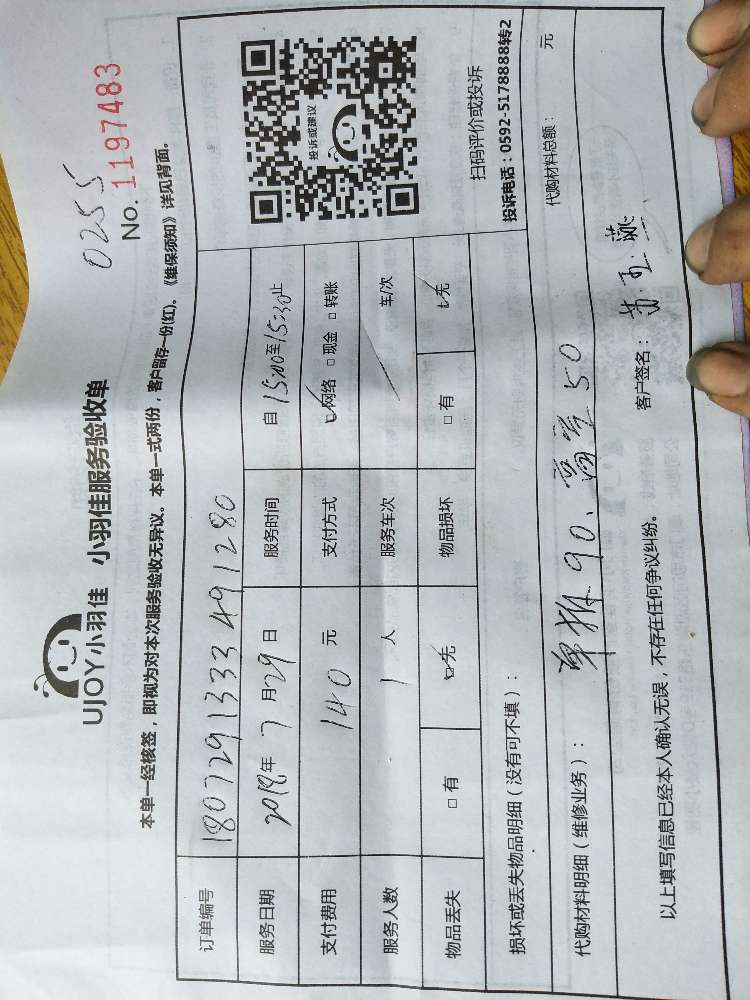 0255
No. 1197483
UJOY小羽佳 小羽佳服务验收单
本单一经核签，即视为对本次服务验收无异议。本单一式两份，客户留存一份(红)。《维保须知》详见背面。
订单编号 180729133349 1280
服务日期 2018年7月29日 服务时间 自15:00至15:30止
支付费用 140元 支付方式 ☑网络 □现金 □转账
服务人数 1人 服务车次 / 车/次
物品丢失 □有 ☑无 物品损坏 □有 ☑无
投诉或建议
扫码评价或投诉
投诉电话：0592-5178888转2
损坏或丢失物品明细（没有可不填）：
代购材料明细（维修业务）： 90、 50 代购材料总额： 元
以上填写信息已经本人确认无误，不存在任何争议纠纷。 客户签名：